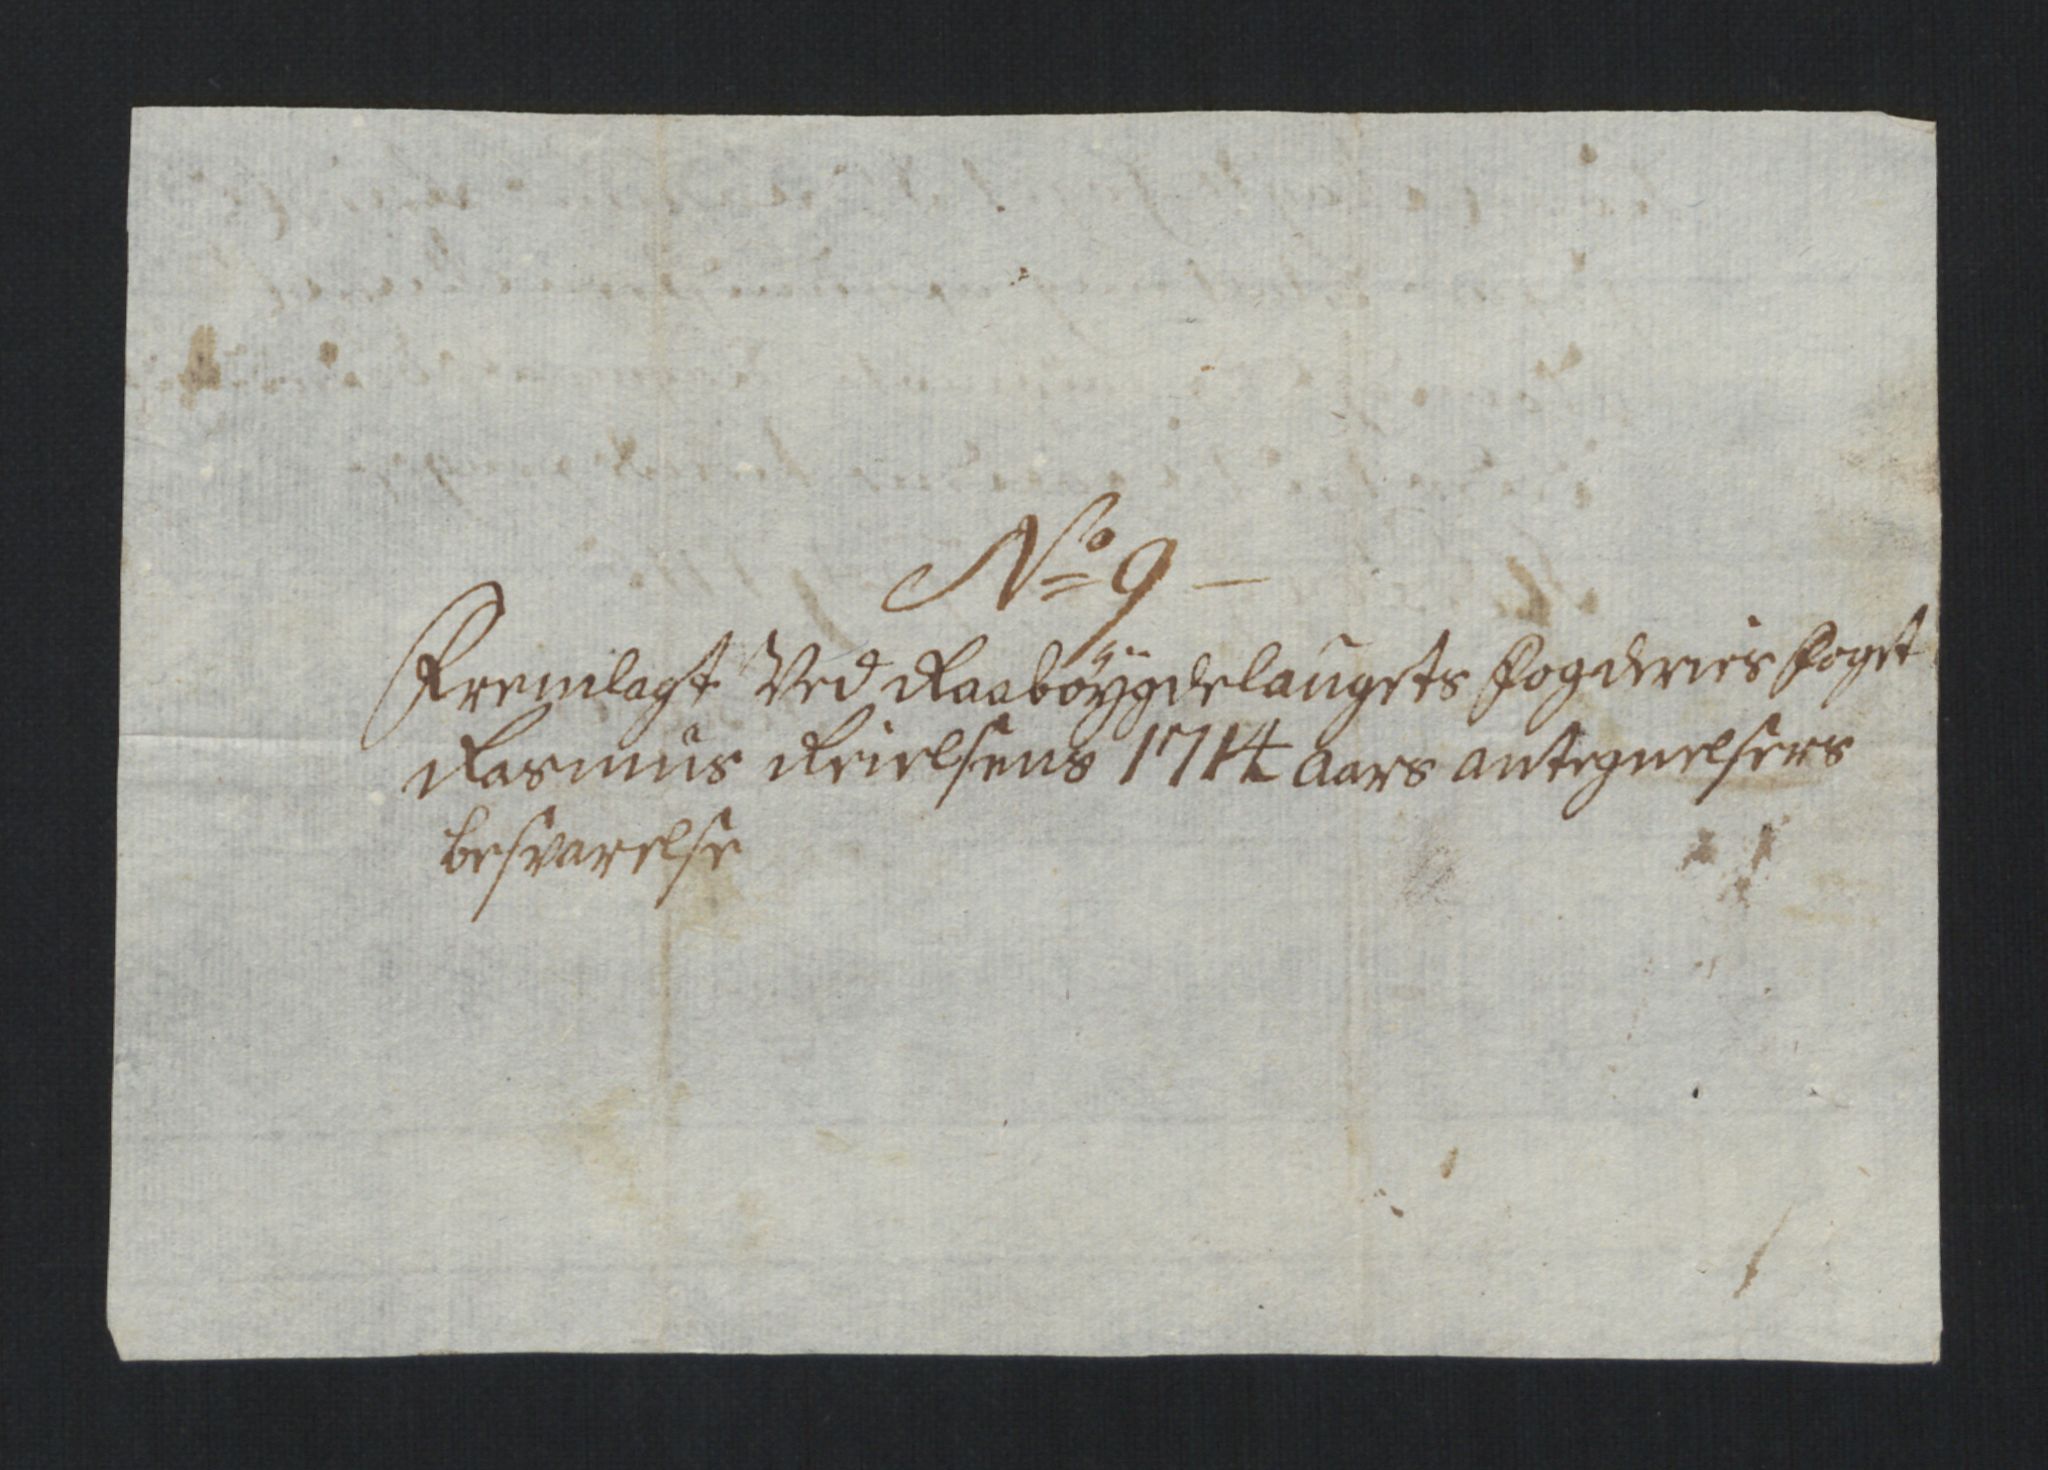 No 9 —
Fremlagt Ved Raaböygdelaugets Fogderies Fogt
Rasmus Reielsens 1714 Aars Antegnelsers
besvarelse